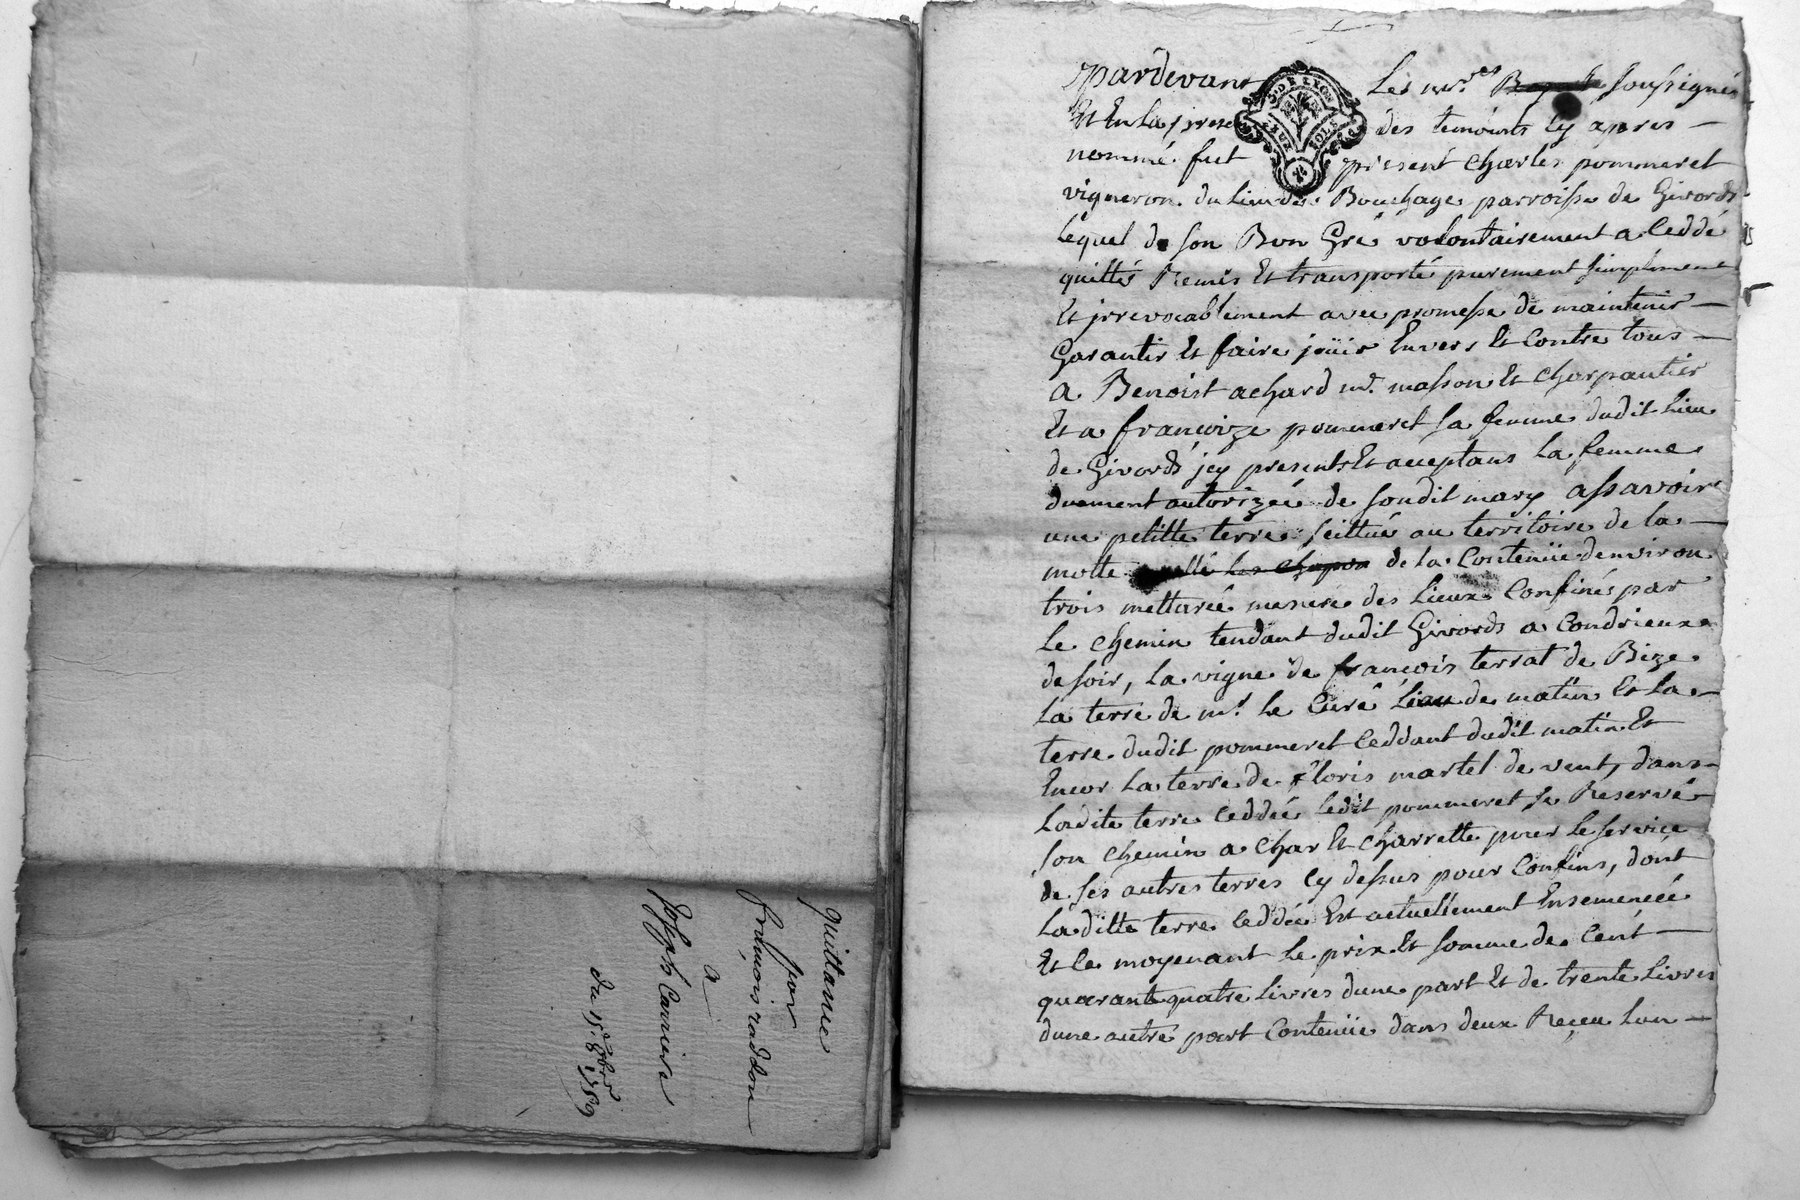 quittance
par
françois raddon
a
Joseph Carriere
du 15 8bre 1789
pardevant Les nrs. soussignés
Et En La prese des temoins Cy apres
nommé. fut present Charles pommeret
vigneron du Lieu de Bouchage parroisse de Givords
Lequel de son Bon Gré volontairement a Ceddé
quitté Remis Et transporté purement simplement
Et jrrevocablement avec promesse de maintenir
Garantir Et faire joüir Envers Et Contre tous
a Benoist achard md. masson Et Charpantier
Et a françoize pommeret sa femme dudit Lieu
de Givords jcy presents Et acceptans La femme
duement autorizée de sondit mary assavoir
une petitte terre scittué au territoire de la
motte de la Contenüe denviron
trois mettarée mesure des Lieux Confinés par
Le Chemin tendant dudit Givords a Condrieux
de soir, La vigne de françois terrat de Bize
La terre de mr. Le Curé de matin Et La
terre dudit pommeret Ceddant dudit matin Et
Encor La terre de floris martel de vent, dans
Ladite terre Ceddée Ledit pommeret se Reservé
son Chemin a Char Et Charrette pour Le service
de ses autres terres Cy dessus pour Confins, dont
La ditte terre Ceddée Est actuellement Ensemencée
Et Ce moyenant Le prix Et somme de Cent
quarante quatre Livres dune part Et de trente Livres
dune autre part Contenüe dans deux Reçeu Lun